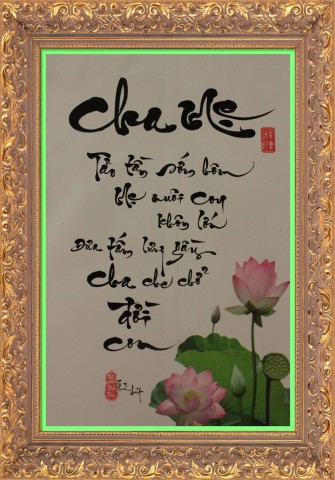 Cha Mẹ
Tảo tần sớm hôm
Mẹ nuôi con
khôn lớn
Đưa tấm lưng gầy
cha che chở
đời
con